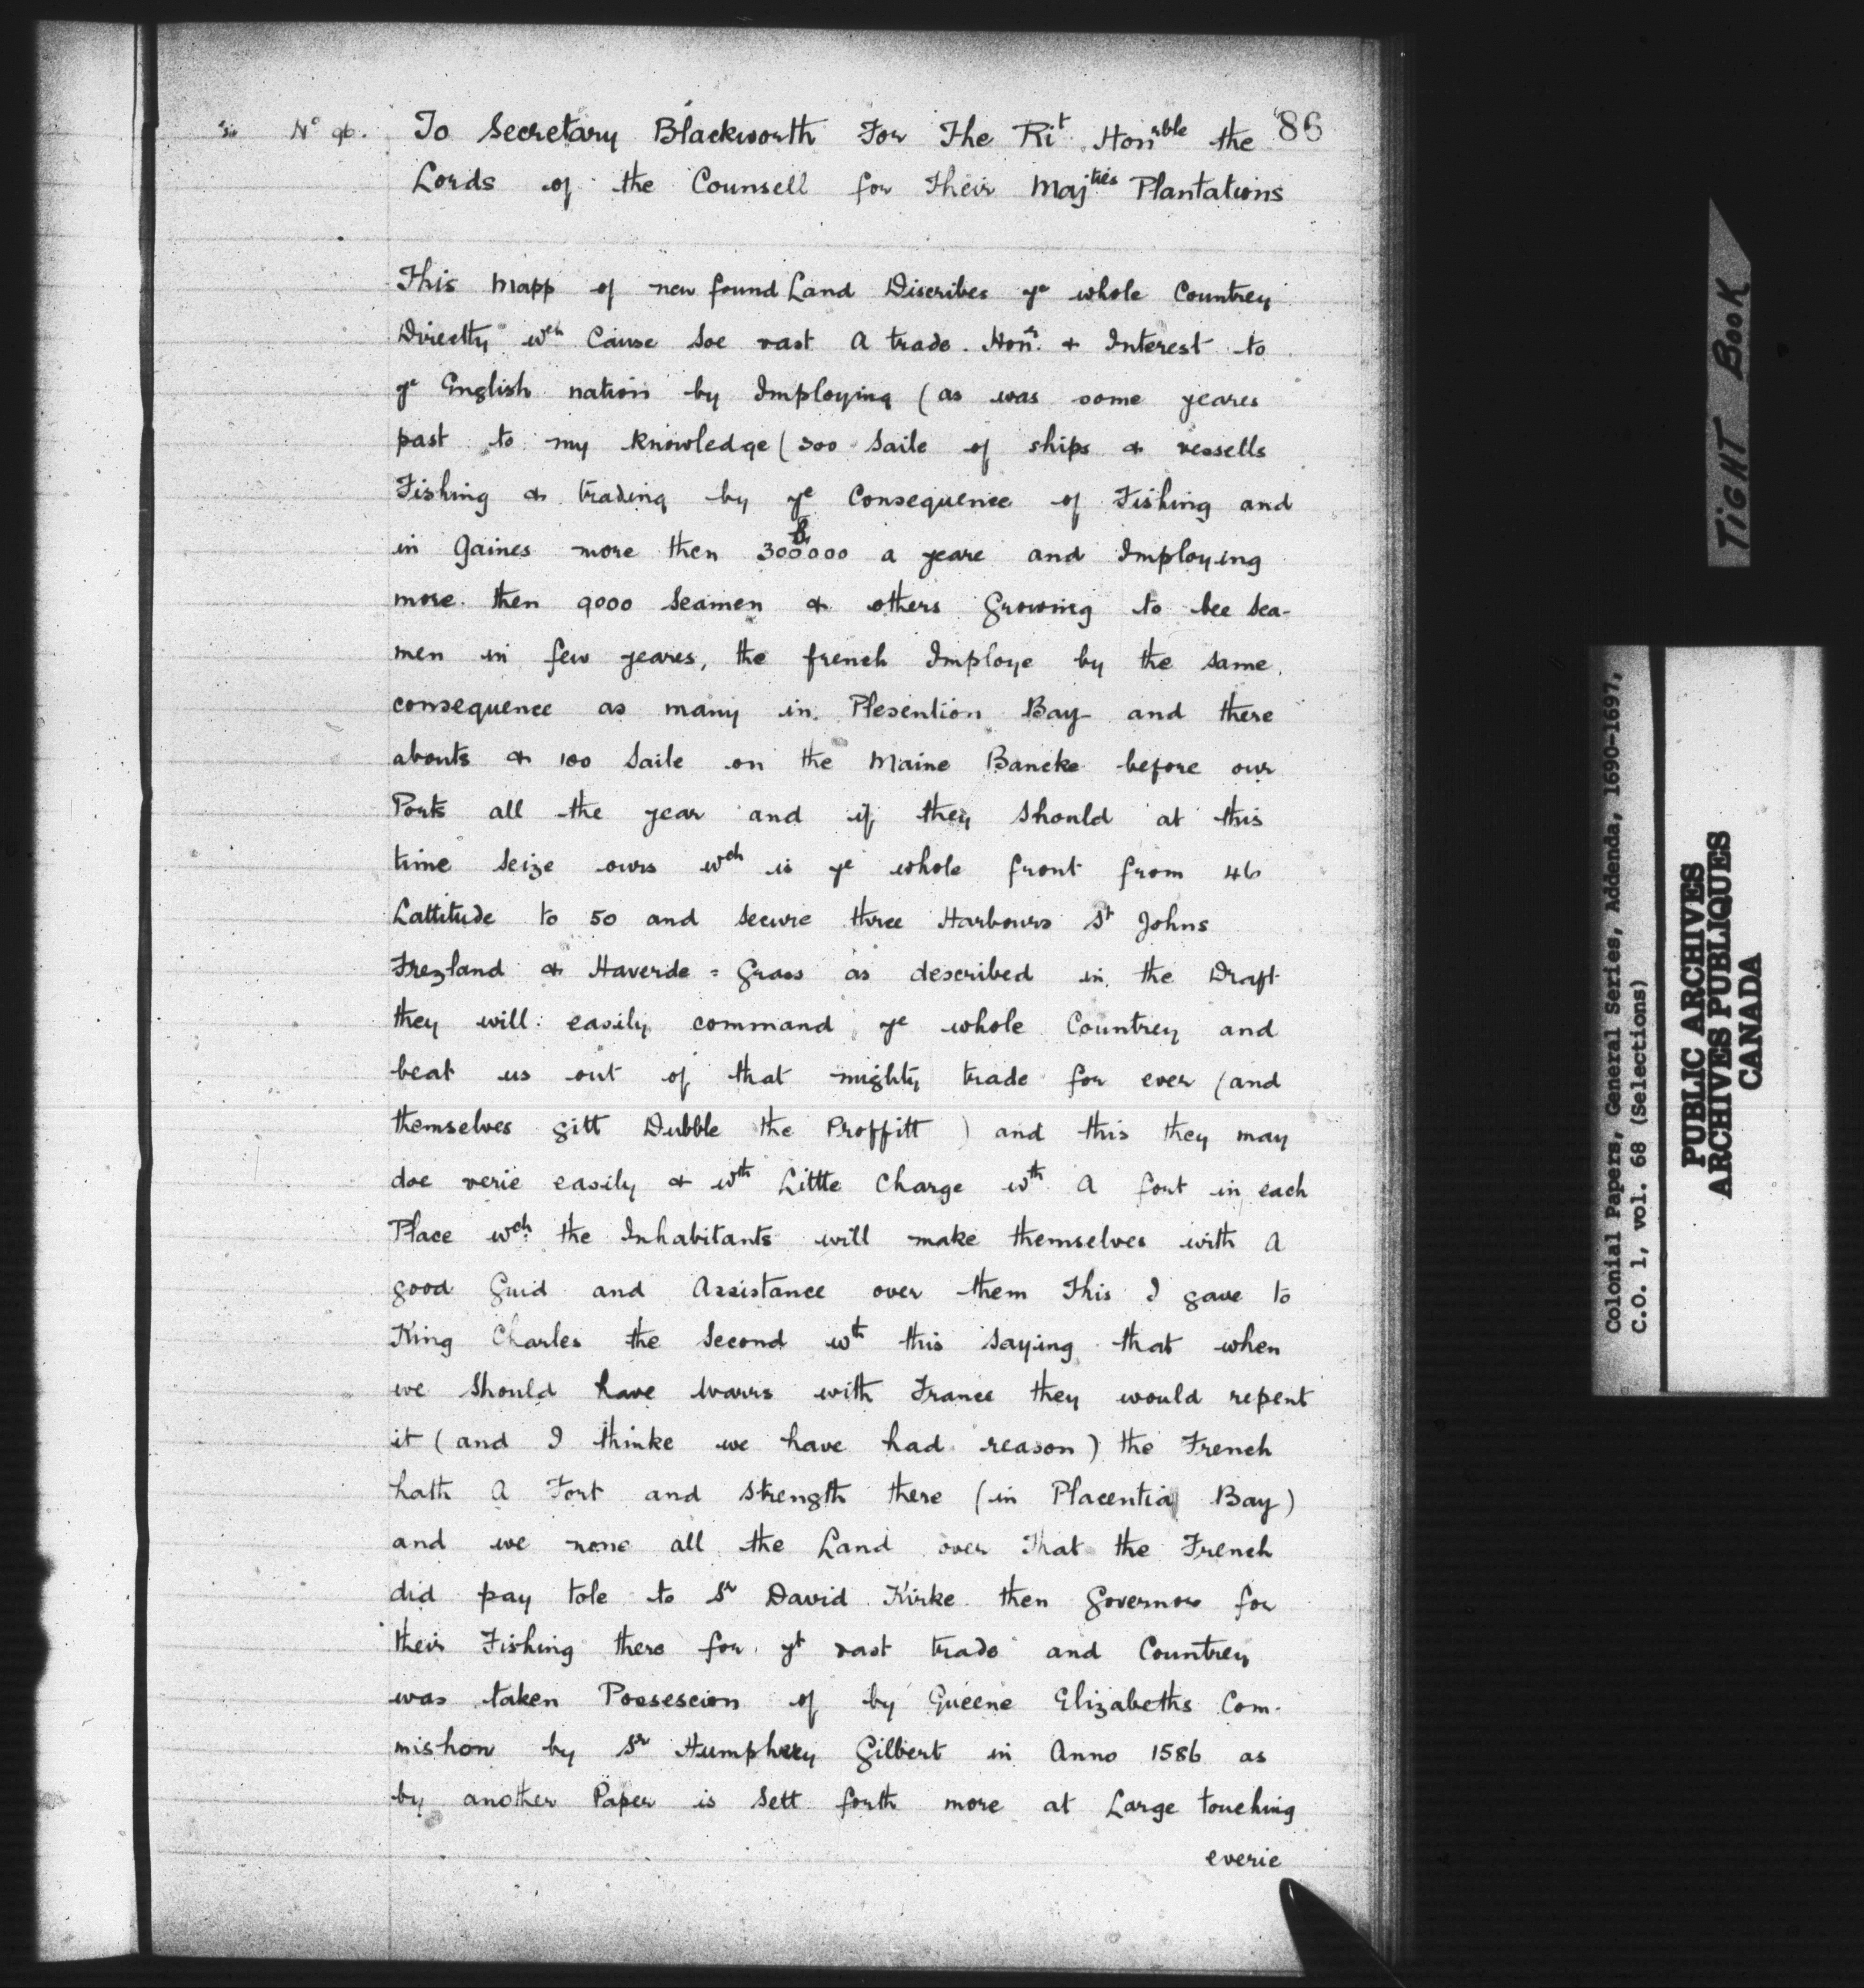 Nº 96. To Secretary Blackworth For The Rit Honrble the 86
Lords of the Counsell for Their Majties Plantations
This Mapp of new found Land Discribes ye whole Countrey
Directly wch Cause soe vast A trade. Honr & Interest to
ye English nation by Imploying (as was some yeares
past to my knowledge (300 Saile of ships & vessells
Fishing & trading by ye Consequence of Fishing and
in Gaines more then 300000 a yeare and Imploying
more then 9000 Seamen & others Growing to bee Sea-
men in few yeares, the french Imploye by the same
consequence as many in Plesention Bay and there
abouts & 100 Saile on the Maine Bancke before our
Ports all the year and if they should at this
time seize ours wch is ye whole front from 46
Lattitude to 50 and secure three Harbours St Johns
Frezland & Haverde = Grass as described in the Draft
they will easily command ye whole Countrey and
beat us out of that mighty trade for ever (and
themselves gitt Dubble the Proffitt ) and this they may
doe verie easily & wth Little Charge wth A fort in each
Place wch the Inhabitants will make themselves with A
good Guid and Assistance over them This I gave to
King Charles the Second wth this saying that when
we should have Warrs with France they would repent
it (and I thinke we have had reason) the French
hath A Fort and Strength there (in Placentia Bay)
and we none all the Land over That the French
did pay tole to Sr David Kirke then Governor for
their Fishing there for yt vast trade and Countrey
was taken Possescion of by Queene Elizabeths Com-
mishon by Sr Humphrey Gilbert in Anno 1586 as
by another Paper is Sett forth more at Large touching
everie
TIGHT BOOK
Colonial Papers, General Series, Addenda, 1690-1697,
C.O. 1, vol. 68 (Selections)
PUBLIC ARCHIVES
ARCHIVES PUBLIQUES
CANADA